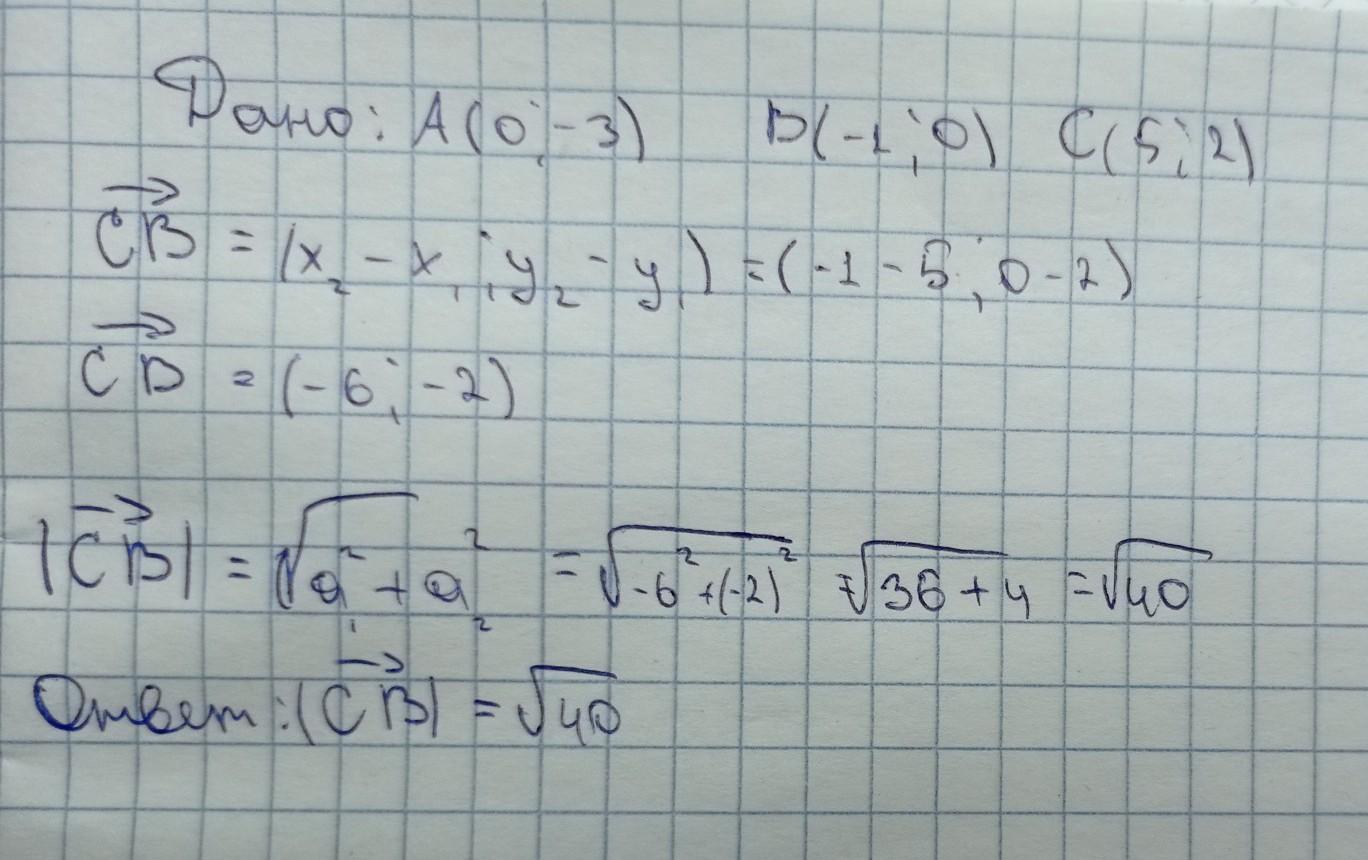 Дано: A(0;-3) B(-1;0) C(5;2)
CB = (x₂ - x₁; y₂ - y₁) = (-1-5; 0-2)
CB = (-6; -2)
|CB| = √a₁² + a₂² = √-6²+(-2)² = √36+4 = √40
Ответ: |CB| = √40